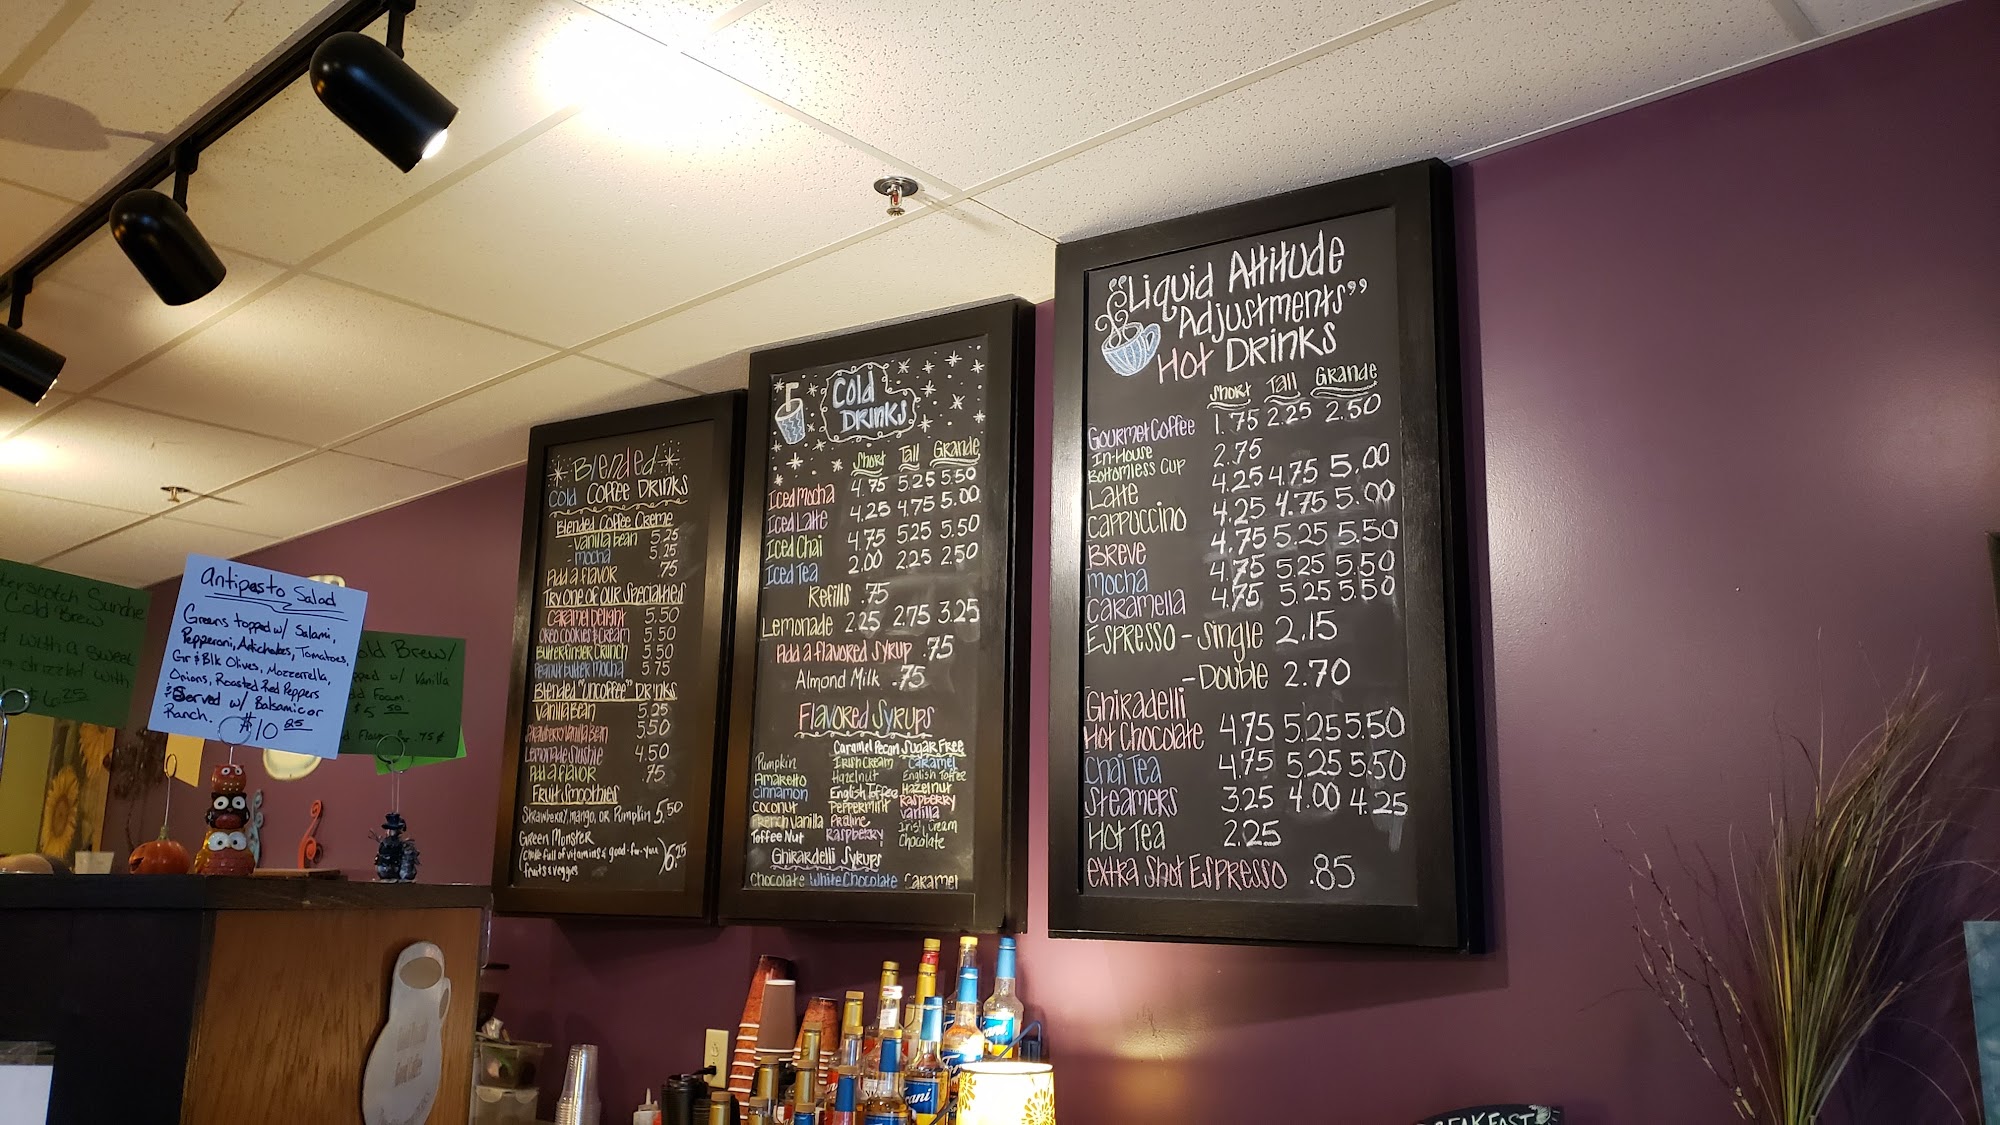 terscotch Sundae
Cold Brew
with a sweet
drizzled with
$6 25
Antipasto Salad
Greens topped w/ Salami,
Pepperoni, Artichokes, Tomatoes,
Gr & Blk Olives, Mozzerella,
Onions, Roasted Red Peppers
Served w/ Balsamic or
Ranch. $10 25
old Brew/
w/ Vanilla
Foam.
$5 50
.75¢
Blended
Cold Coffee Drinks
Blended Coffee Creme
-Vanilla bean 5.25
-Mocha 5.25
Add a flavor .75
Try one of our Specialties
Caramel Delight 5.50
Oreo Cookies & Cream 5.50
Butterfinger Crunch 5.50
Peanut butter Mocha 5.75
Blended "uncoffee" Drinks
Vanilla Bean 5.25
Strawberry Vanilla Bean 5.50
Lemonade Slushie 4.50
Add a flavor .75
Fruit Smoothies
Strawberry, mango, or Pumpkin 5.50
Green Monster
(chock full of vitamins & good-for-you
fruits & veggies) 6.25
Cold
Drinks
Short Tall Grande
Iced Mocha 4.75 5.25 5.50
Iced Latte 4.25 4.75 5.00
Iced Chai 4.75 5.25 5.50
Iced Tea 2.00 2.25 2.50
Refills .75
Lemonade 2.25 2.75 3.25
Add a flavored syrup .75
Almond Milk .75
Flavored Syrups
Caramel Pecan Sugar Free
Pumpkin Irish Cream Caramel
Amaretto Hazelnut English Toffee
Cinnamon English Toffee Hazelnut
Coconut Peppermint Raspberry
French Vanilla Praline Vanilla
Toffee Nut Raspberry Irish Cream
Chocolate
Ghirardelli Syrups
Chocolate White Chocolate Caramel
"Liquid Attitude
Adjustments"
Hot Drinks
Short Tall Grande
Gourmet Coffee 1.75 2.25 2.50
In-House
Bottomless Cup 2.75
Latte 4.25 4.75 5.00
Cappuccino 4.25 4.75 5.00
Breve 4.75 5.25 5.50
Mocha 4.75 5.25 5.50
Caramella 4.75 5.25 5.50
Espresso - Single 2.15
- Double 2.70
Ghiradelli
Hot Chocolate 4.75 5.25 5.50
Chai Tea 4.75 5.25 5.50
Steamers 3.25 4.00 4.25
Hot Tea 2.25
extra Shot Espresso .85